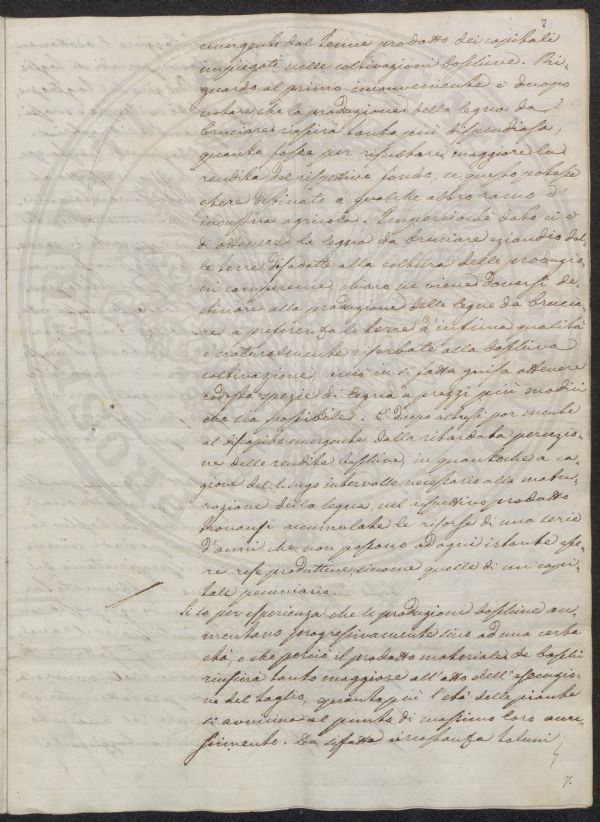 7
emergente dal tenue prodotto dei capitali
impiegati nelle coltivazioni boschive. Ri-
guardo al primo inconveniente è duopo
notare, che la produzione della legna da
bruciare riesirà tanto più dispendiosa,
quanto fosse per risultare maggiore la
rendita del rispettivo fondo, se questo potesse
essere destinato a qualche altro ramo d'
industria agricola. Imperciocchè dato ci è
di ottenere la legna da bruciare eziandio dal-
le terre disadatte alla coltura delle produzio-
ni campereccie, chiaro ne viene doversi de-
stinare alla produzione delle legne da brucia-
re a preferenza le terre d'infima qualità
e naturalmente riserbate alla boschiva
coltivazione, acciò in sì fatta guisa ottenere
codesta spezie di legna a prezzi più modici
che sia possibile. È duopo altresì por mente
al discapito emergente dalla ritardata percezio-
ne delle rendite boschive, in quantochè a ca-
gione del lungo intervallo necessario alla matu-
razione della legna, nel rispettivo prodotto
trovansi accumulate le risorse di una serie
d'anni che non possono ad ogni istante esse-
re rese produttive siccome quelle di un capi-
tale pecuniario.
Si sa per esperienza che le produzioni boschive au-
mentano progressivamente sino ad una certa
età, e che perciò il prodotto materiale de boschi
riuscirà tanto maggiore all'atto dell'esecuzio-
ne del taglio, quanto più l'età delle piante
si avvicina al punto di massimo loro accre-
scimento. Da siffatta circostanza taluni
7.